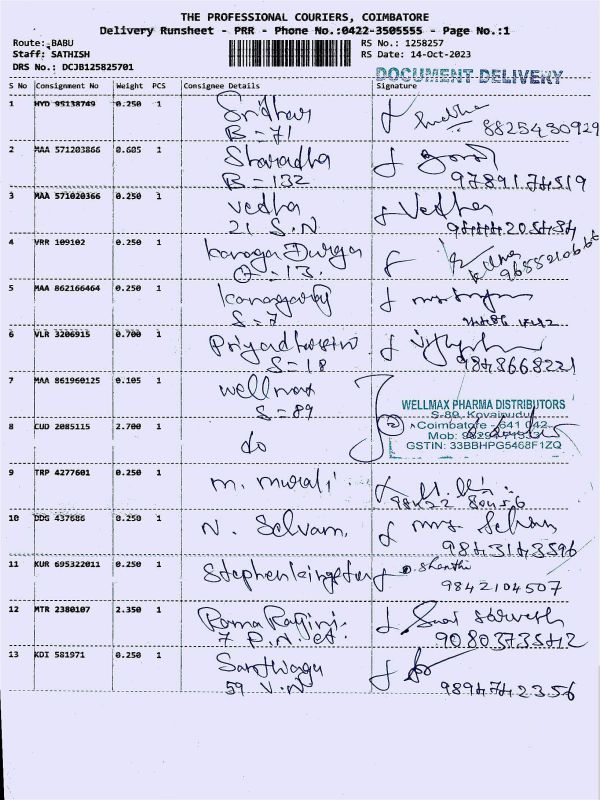 THE PROFESSIONAL COURIERS, COIMBATORE
Delivery Runsheet - PRR - Phone No.:0422-3505555 - Page No.:1
Route: BABU
RS No.: 1258257
Staff: SATHISH
RS Date: 14-Oct-2023
DRS No.: DCJB125825701
DOCUMENT DELIVERY
S No Consignment No Weight PCS Consignee Details Signature
1 HYD 95138749 0.250 1 Sridhar
B = 71
8825430929
2 MAA 571203866 0.605 1 Sharadha
B = 132
9789174519
3 MAA 571020366 0.250 1 Vedha Vedha
21 S.N
4 VRR 109102 0.250 1 Kanaga Durga
13.
5 MAA 862166464 0.250 1
S = 7
6 VLR 3206915 0.700 1
S = 18
9843668221
7 MAA 861960125 0.105 1 Wellmax
S = 89
WELLMAX PHARMA DISTRIBUTORS
S-89, Kovaipudur
Coimbatore - 641 042.
Mob:
GSTIN: 33BBHPG5468F1ZQ
8 CUD 2085115 2.700 1 do
9 TRP 4277601 0.250 1 M. Murali
98422 80456
10 DDG 437686 0.250 1 N. Selvam. Mrs. Selvam
9843143596
11 KUR 695322011 0.250 1 Shanthi
9842104507
12 MTR 2380107 2.350 1 Rama Ragini
7 P.N. st.
9080373542
13 KDI 581971 0.250 1
59 V.N
9894742356